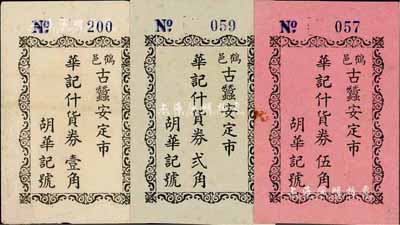 № 200
鶴邑
古蠶安定市
華記什貨券壹角
胡華記號
№ 059
鶴邑
古蠶安定市
華記什貨券弍角
胡華記號
№ 057
鶴邑
古蠶安定市
華記什貨券伍角
胡華記號